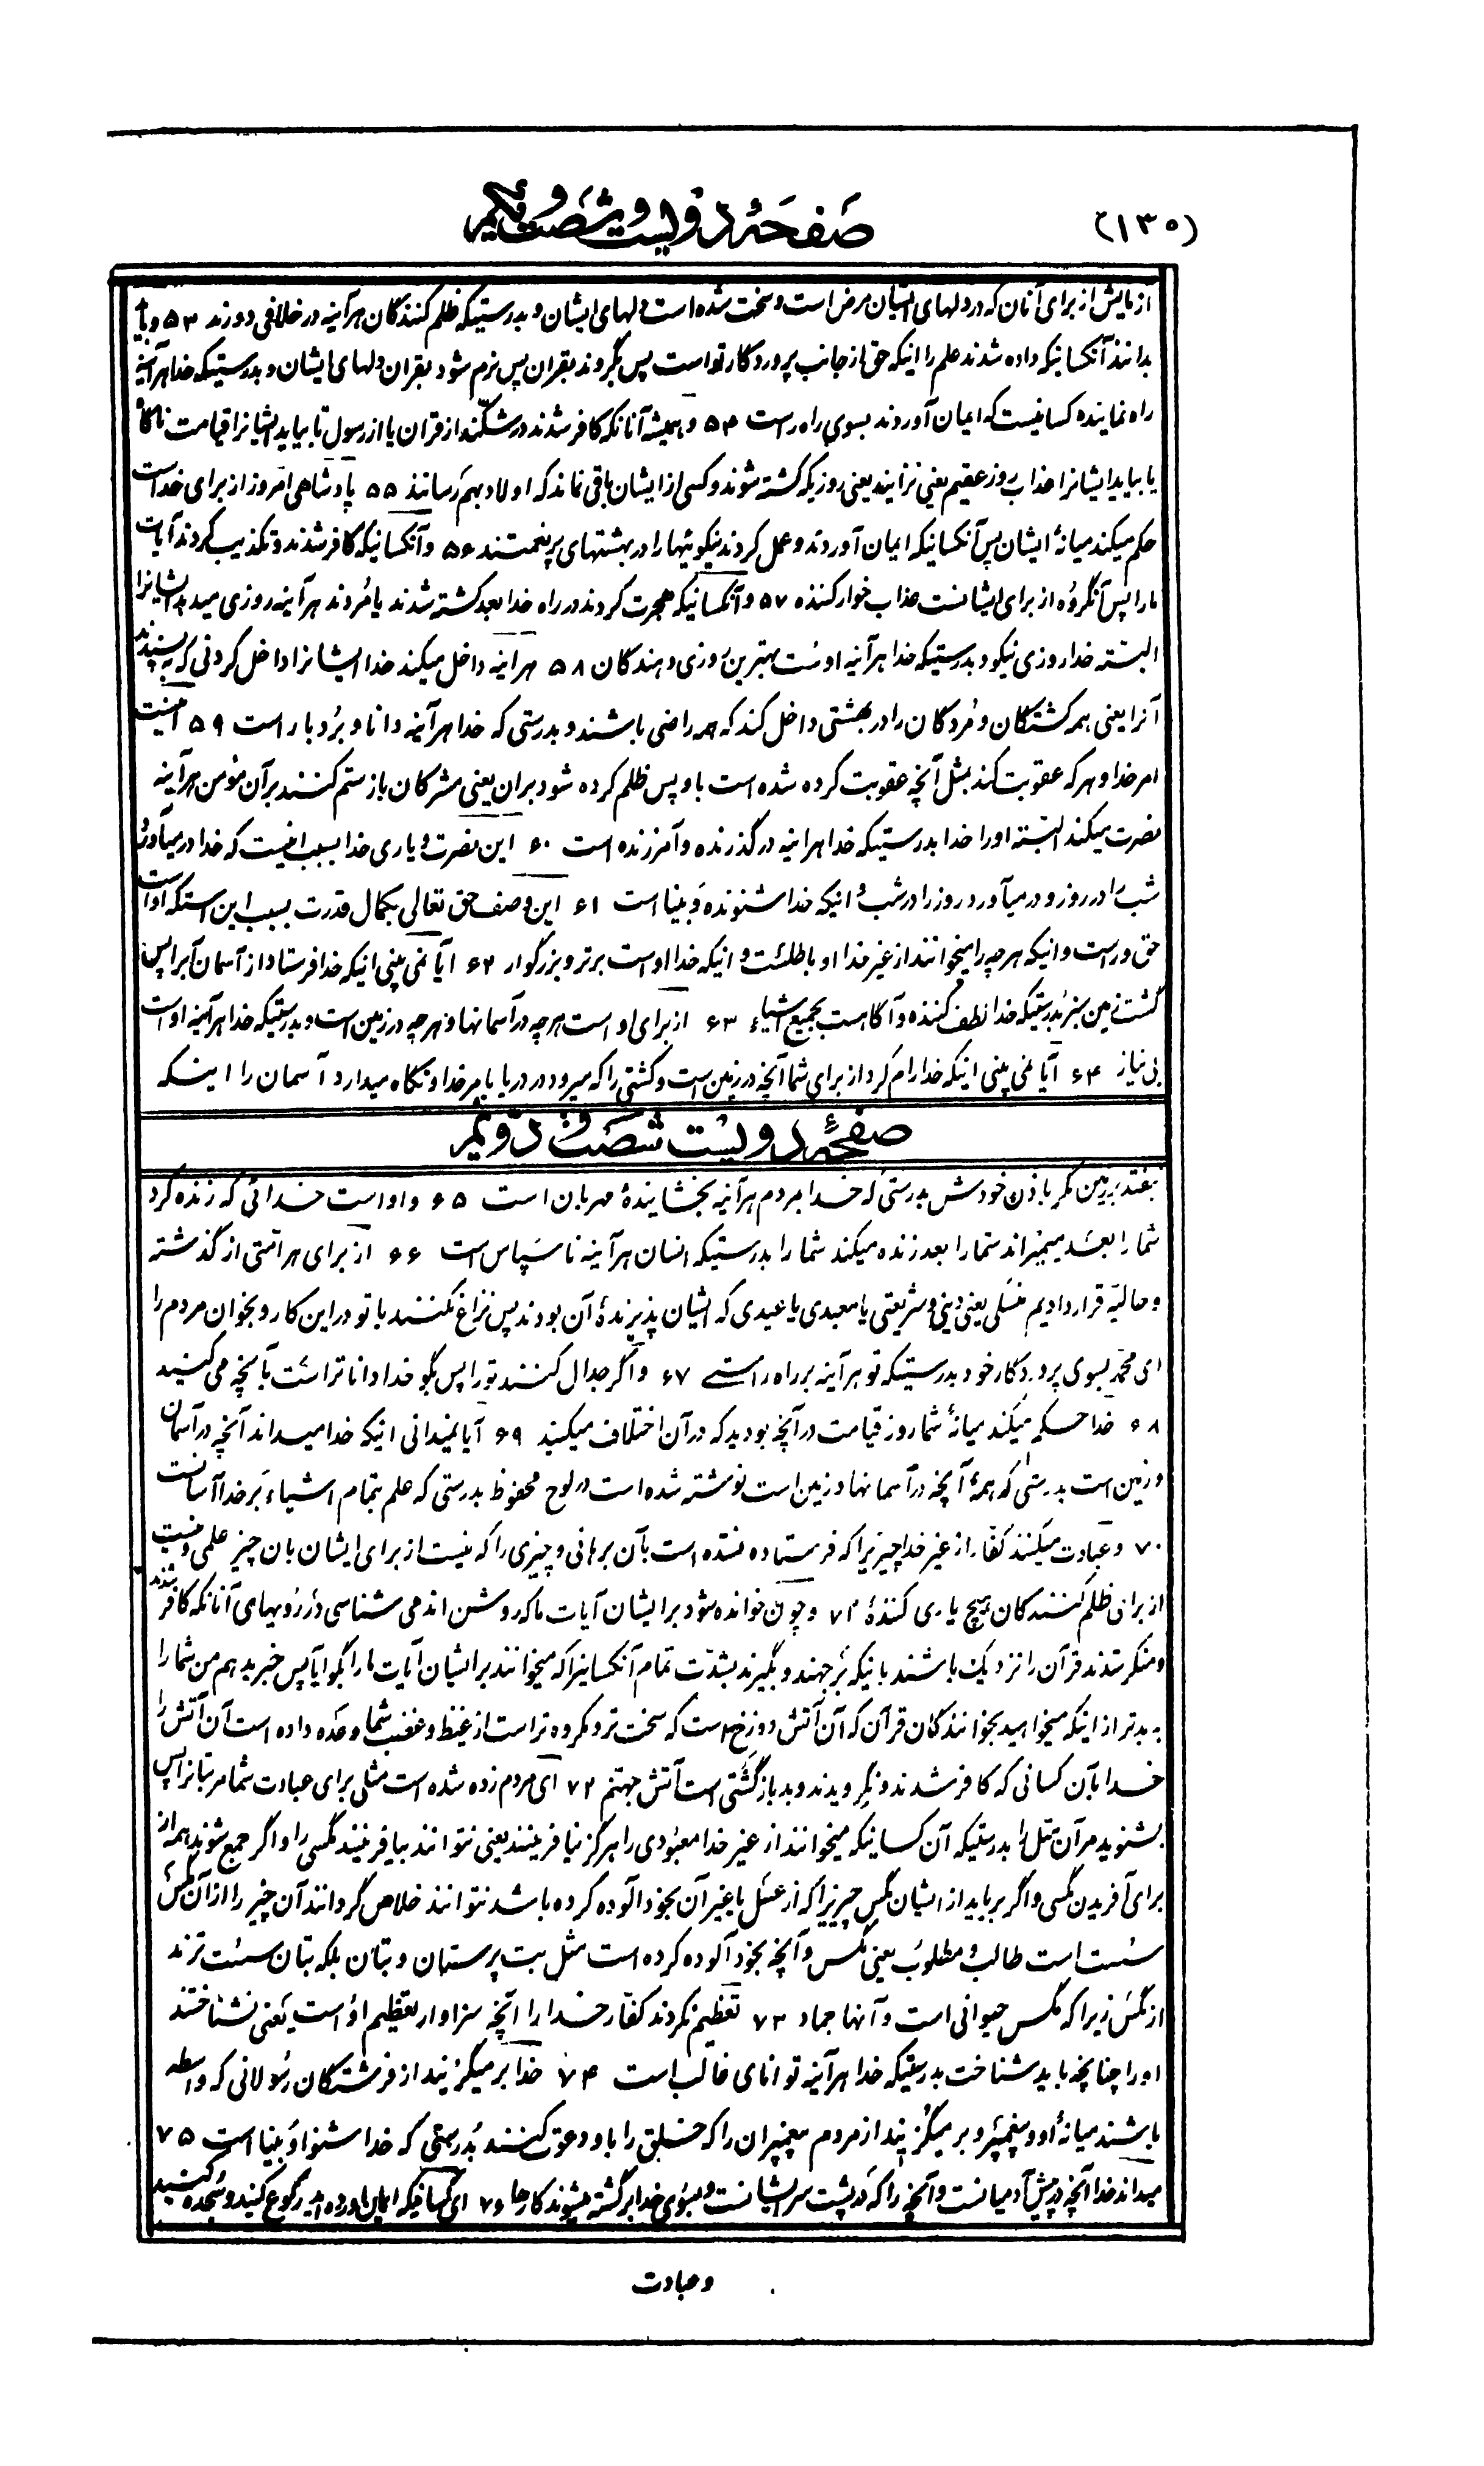 (۱۳۵)
صفحهٔ دویست و شصت و یکم
ازمایش از برای آنان که در دلهای ایشان مرض است و سخت شده است دلهای ایشان و بدرستیکه ظلم کنندگان هرآینه در خلافی دورند ۵۳ و تا
بدانند آنکسانیکه داده شدند علم را اینکه حق از جانب پروردگار تو است پس بگروند بقران پس نرم شود بقران دلهای ایشان و بدرستیکه خدا هرآینه
راه نماینده کسانیست که ایمان آوردند بسوی راه راست ۵۴ و همیشه آنانکه کافر شدند در شکند از قران یا از رسول تا بیاید ایشانرا قیامت ناگاه
یا بیاید ایشانرا عذاب روز عقیم یعنی نزایند یعنی روزیکه کشته شوند و کسی از ایشان باقی نماند که اولاد بهم رسانند ۵۵ پادشاهی امروز از برای خداست
حکم میکند میانهٔ ایشان پس آنکسانیکه ایمان آوردند و عمل کردند نیکوئیها را در بهشتهای پر نعمتند ۵۶ و آنکسانیکه کافر شدند و تکذیب کردند آیات
ما را پس آنگروه از برای ایشانست عذاب خوار کننده ۵۷ و آنکسانیکه هجرت کردند در راه خدا بعد کشته شدند یا مُردند هرآینه روزی میدهد ایشانرا
البته خدا روزی نیکو و بدرستیکه خدا هرآینه اوست بهترین روزی دهندگان ۵۸ هراینه داخل میکند خدا ایشانرا داخل کردنی که بپسندند
آنرا یعنی همه کشتگان و مُردگان را در بهشتی داخل کند که همه راضی باشند و بدرستی که خدا هرآینه دانا و بُردبار است ۵۹ اینست
امر خدا و هرکه عقوبت کند بمثل آنچه عقوبت کرده شده است باو پس ظلم کرده شود بران یعنی مشرکان باز ستم کنند برآن مؤمن هرآینه
نصرت میکند البته او را خدا بدرستیکه خدا هراینه درگذرنده و آمرزنده است ۶۰ این نصرت و یاری خدا بسبب اینست که خدا در میآورد
شب را در روز و در میآورد روز را در شب و اینکه خدا شنونده و بینا است ۶۱ این وصف حق تعالی بکمال قدرت بسبب این استکه او است
حق و راست و اینکه هرچه را میخوانند از غیر خدا او باطلست و اینکه خدا او است برتر و بزرگوار ۶۲ ایا نمی بینی اینکه خدا فرستاد از آسمان آبرا پس
گشت زمین سبز بُدرستیکه خدا لطف کننده و آگاهست بجمیع اشیاء ۶۳ از برای او است هرچه در آسمانها و هرچه در زمین است و بدرستیکه خدا هرآینه او است
بی نیاز ۶۴ آیا نمی بینی اینکه خدا رام کرد از برای شما آنچه در زمین است و کشتی را که میرود در دریا بامر خدا و نگاه میدارد آسمان را اینکه
صفحهٔ دویست شصت و دویّم
بیفتد بر زمین مگر باذن خودش بدرستی که خدا بمردم هرآینه بخشایندهٔ مهربان است ۶۵ و او است خدائی که زنده کرد
شما را بعد میمیراند شما را بعد زنده میکند شما را بدرستیکه انسان هرآینه ناسپاس است ۶۶ از برای هر امّتی از گذشته
و حالیه قرار دادیم منسکی یعنی دینی و شریعتی یا معبدی یا عیدی که ایشان پذیرندهٔ آن بودند پس نزاع نکنند با تو در این کار و بخوان مردم را
ای محمّد بسوی پروردگار خود بدرستیکه تو هرآینه بر راه راستی ۶۷ و اگر جدال کنند تو را پس بگو خدا داناتر است بآنچه می کنید
۶۸ خدا حکم میکند میانهٔ شما روز قیامت در آنچه بودید که در آن اختلاف میکنید ۶۹ آیا نمیدانی اینکه خدا میداند آنچه در آسمان
و زمین است بدرستی که همهٔ آنچه در آسمانها و زمین است نوشته شده است در لوح محفوظ بدرستی که علم بتمام اشیاء بر خدا آسانست
۷۰ و عبادت میکنند کفّار از غیر خدا چیزیرا که فرستاده نشده است بآن برهانی و چیزی را که نیست از برای ایشان بان چیز علمی و نیست
از برای ظلم کنندگان هیچ یاری کنندهٔ ۷۱ و چون خوانده شود بر ایشان آیات ما که روشن اند می شناسی در رویهای آنانکه کافر شدند
و منکر شدند قرآن را نزدیک باشند بانیکه بر جهند و بگیرند بشدّت تمام آنکسانیرا که میخوانند بر ایشان آیات ما را بگو ایا پس خبر بدهم من شما را
به بدتر از اینکه میخواهید بخوانندگان قرآن که آن آتش دوزخ است که سخت تر و مکروه تر است از غیظ و غضب شما وعده داده است آن آتش را
خدا بآن کسانی که کافر شدند و نگرویدند و بد بازگشتی است آتش جهنّم ۷۲ ای مردم زده شده است مثلی برای عبادت شما مر بتانرا پس
بشنوید مرآن مثل را بدرستیکه آن کسانیکه میخوانند از غیر خدا معبودی را هرگز نیافرینند یعنی نتوانند بیافرینند مگسی را و اگر جمع شوند همه از
برای آفریدن مگسی و اگر برباید از ایشان مگس چیزیرا که از عسل یا غیر آن بخود آلوده کرده باشد نتوانند خلاص گردانند آن چیز را از آن مگس
سُست است طالب و مطلوب یعنی مگس و آنچه بخود آلوده کرده است مثل بت پرستان و بتان بلکه بتان سست ترند
از مگس زیرا که مگس حیوانی است و آنها جماد ۷۳ تعظیم نکردند کفّار خدا را آنچه سزاوار تعظیم او است یعنی نشناختند
او را چنانچه باید شناخت بدرستیکه خدا هرآینه توانای غالب است ۷۴ خدا بر میگزیند از فرشتگان رسولانی که واسطه
باشند میانهٔ او و پیغمبر و بر میگزیند از مردم پیغمبران را که خلق را باو دعوت کنند بُدرستی که خدا شنوا و بینا است ۷۵
میداند خدا آنچه در پیش آدمیانست و آنچه را که در پشت سر ایشانست و بسوی خدا برگشته میشوند کارها ۷۶ ای کسانیکه ایمان آورده اید رکوع کنید و سجده کنید
و عبادت